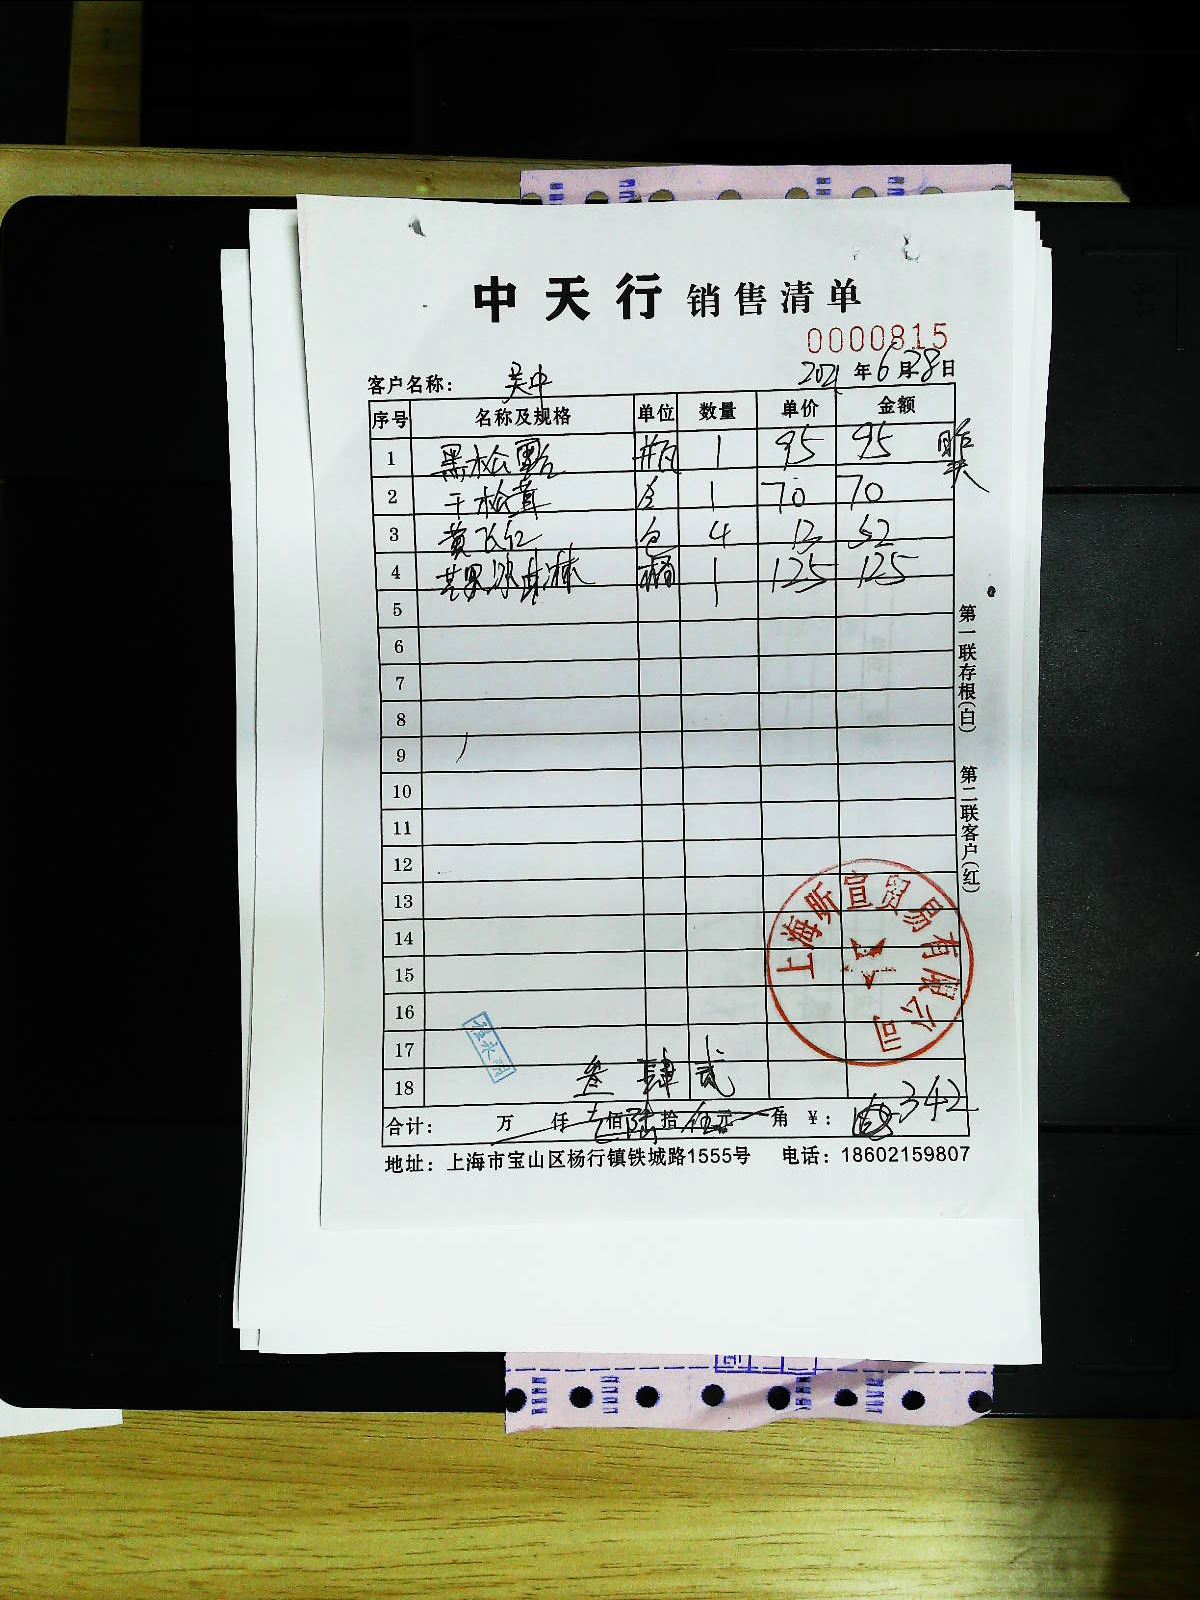 中天行 销售清单
0000815
客户名称： 吴中 2021 年 6 月 28 日
序号 名称及规格 单位 数量 单价 金额
1 黑松露 瓶 1 95 95
2 干松茸 1 70 70
3 黄飞红 包 4 13 52
4 芒果冰淇淋 桶 1 125 125
5
6
7
8
9
10
11
12
13
14
15
16
17
18
叁 肆 贰
合计： 万 仟 佰 陆 拾 伍 元 角 ¥： 342
地址：上海市宝山区杨行镇铁城路1555号 电话：18602159807
第一联存根（白） 第二联客户（红）
上海昕宣贸易有限公司